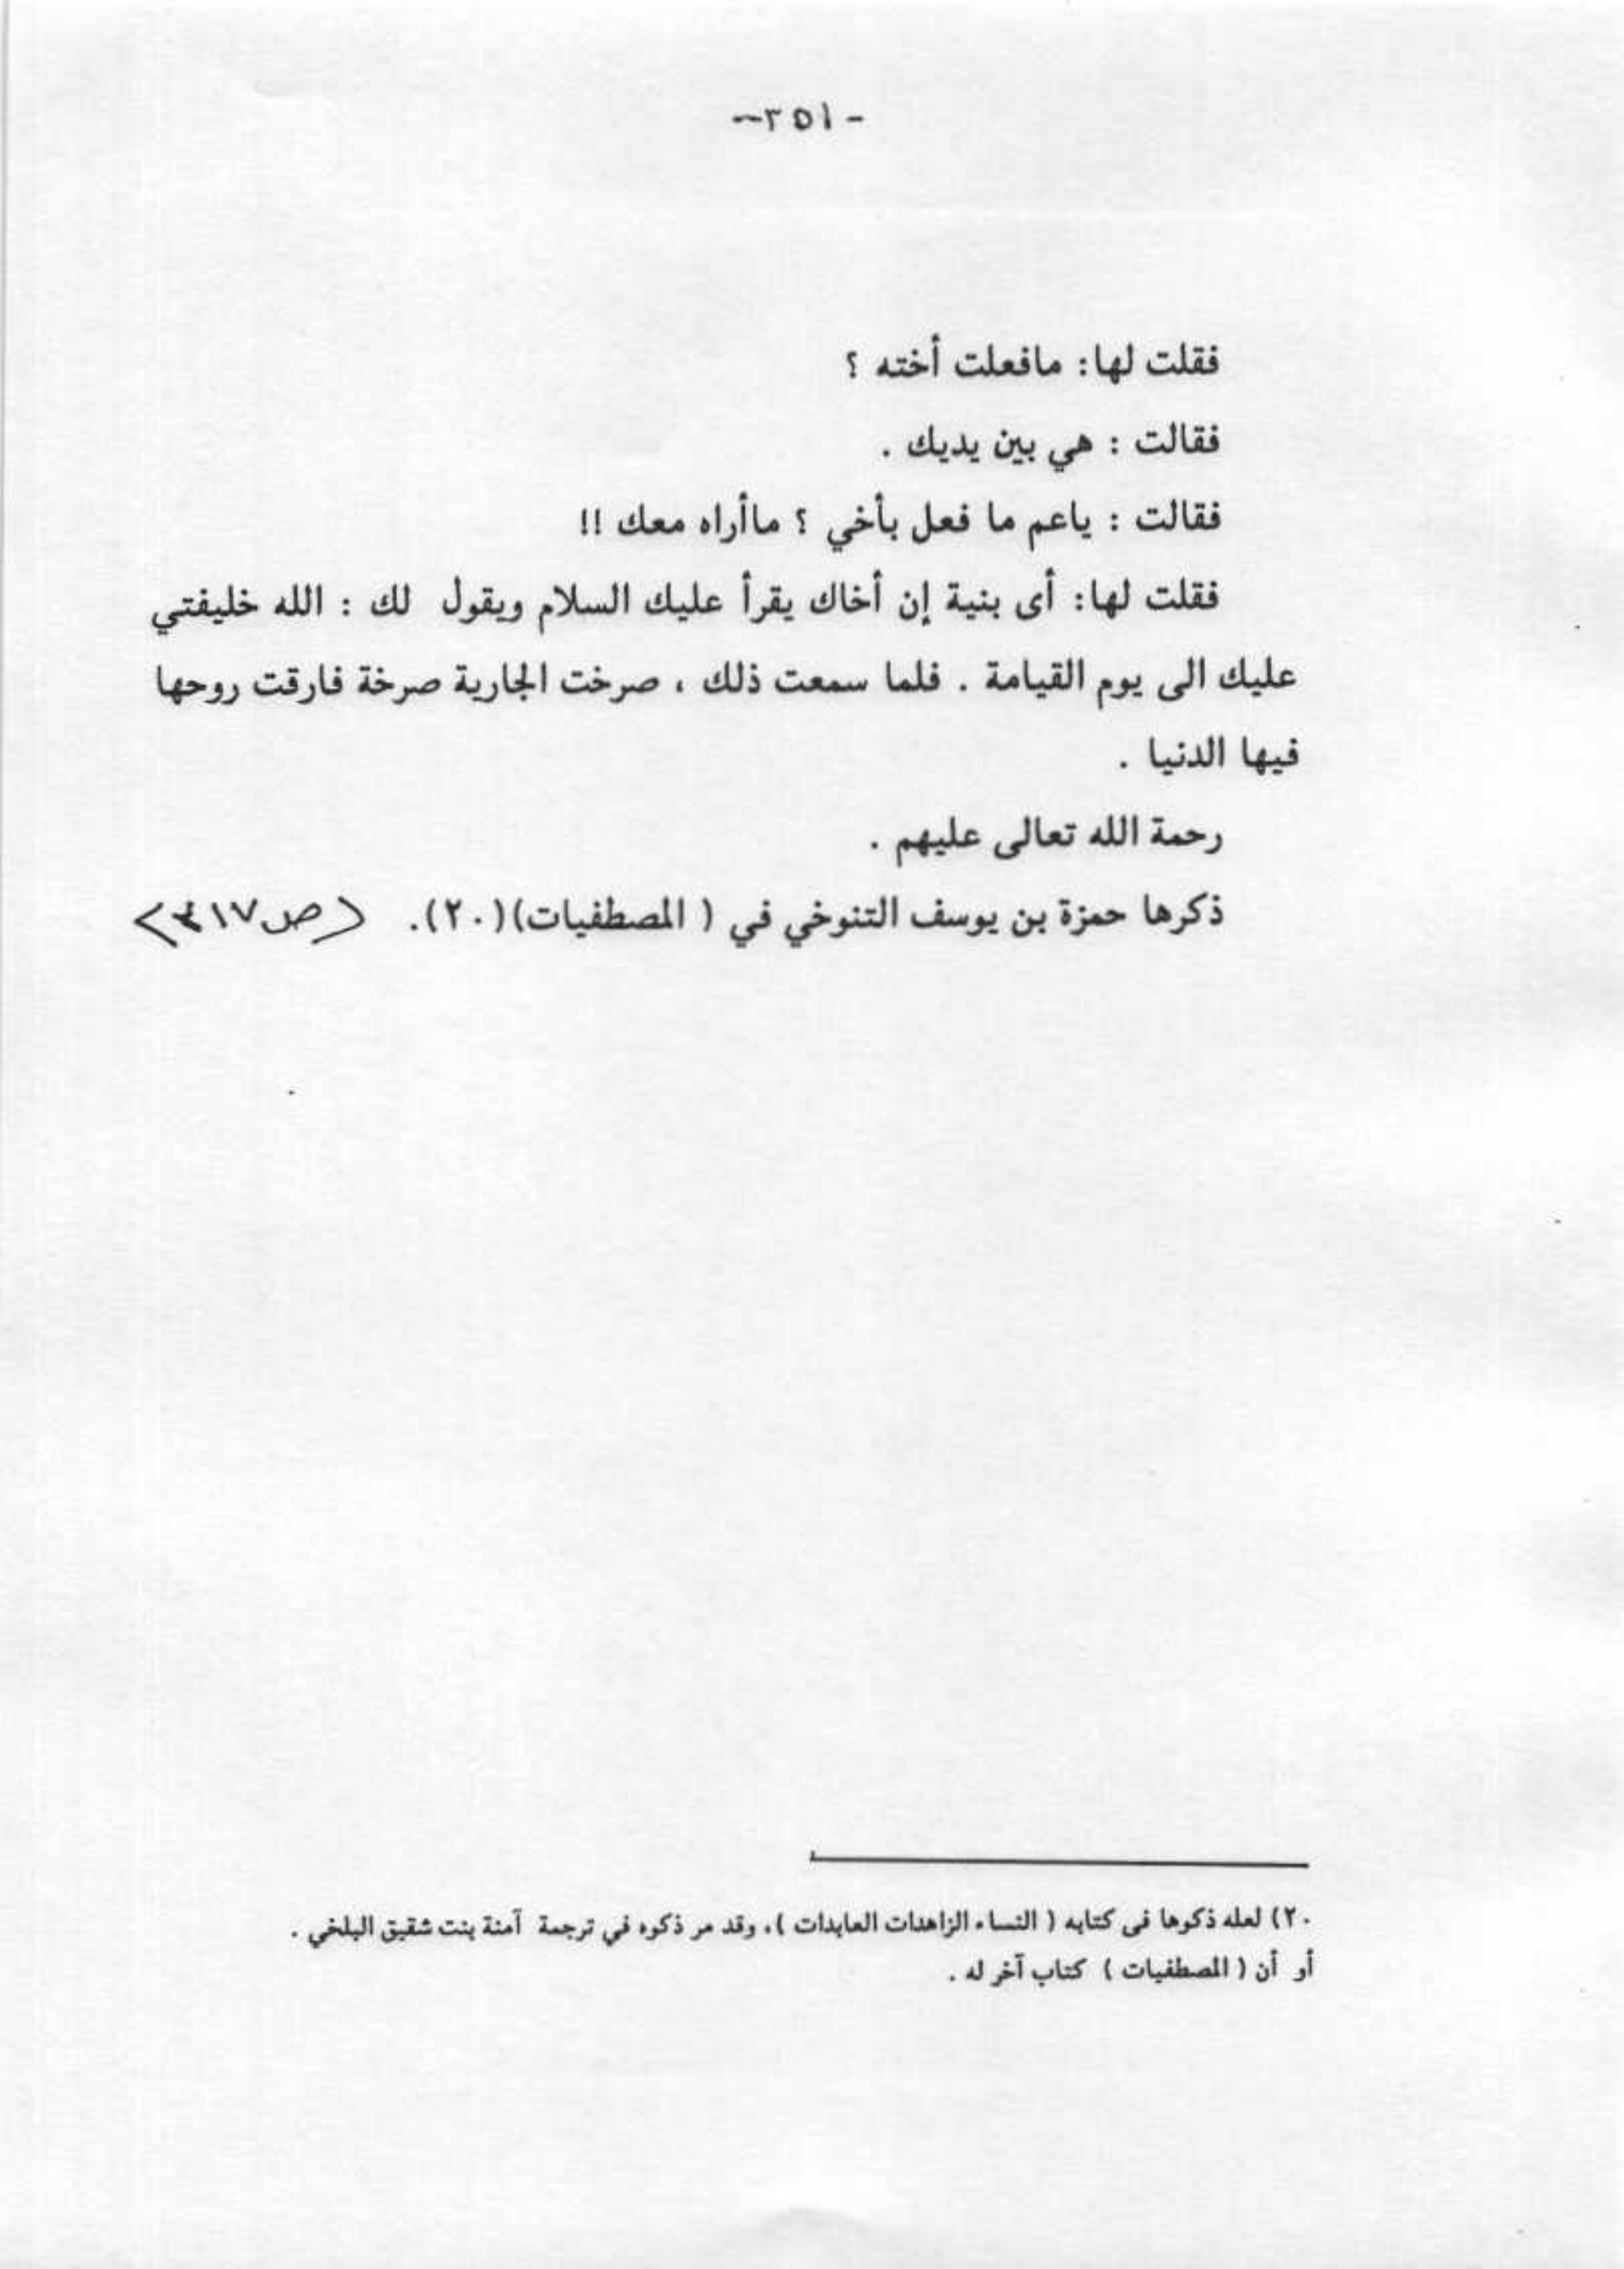 -٣٥١-
فقلت لها: مافعلت أخته ؟
فقالت : هي بين يديك .
فقالت : ياعم ما فعل بأخي ؟ ماأراه معك !!
فقلت لها: أى بنية إن أخاك يقرأ عليك السلام ويقول لك : الله خليفتي
عليك الى يوم القيامة . فلما سمعت ذلك ، صرخت الجارية صرخة فارقت روحها
فيها الدنيا .
رحمة الله تعالى عليهم .
ذكرها حمزة بن يوسف التنوخي في ( المصطفيات)(٢٠). (ص٣١٧)
٢٠) لعله ذكرها فى كتابه ( النساء الزاهدات العابدات )، وقد مر ذكره في ترجمة آمنة بنت شقيق البلخي .
أو أن ( المصطفيات ) كتاب آخر له .